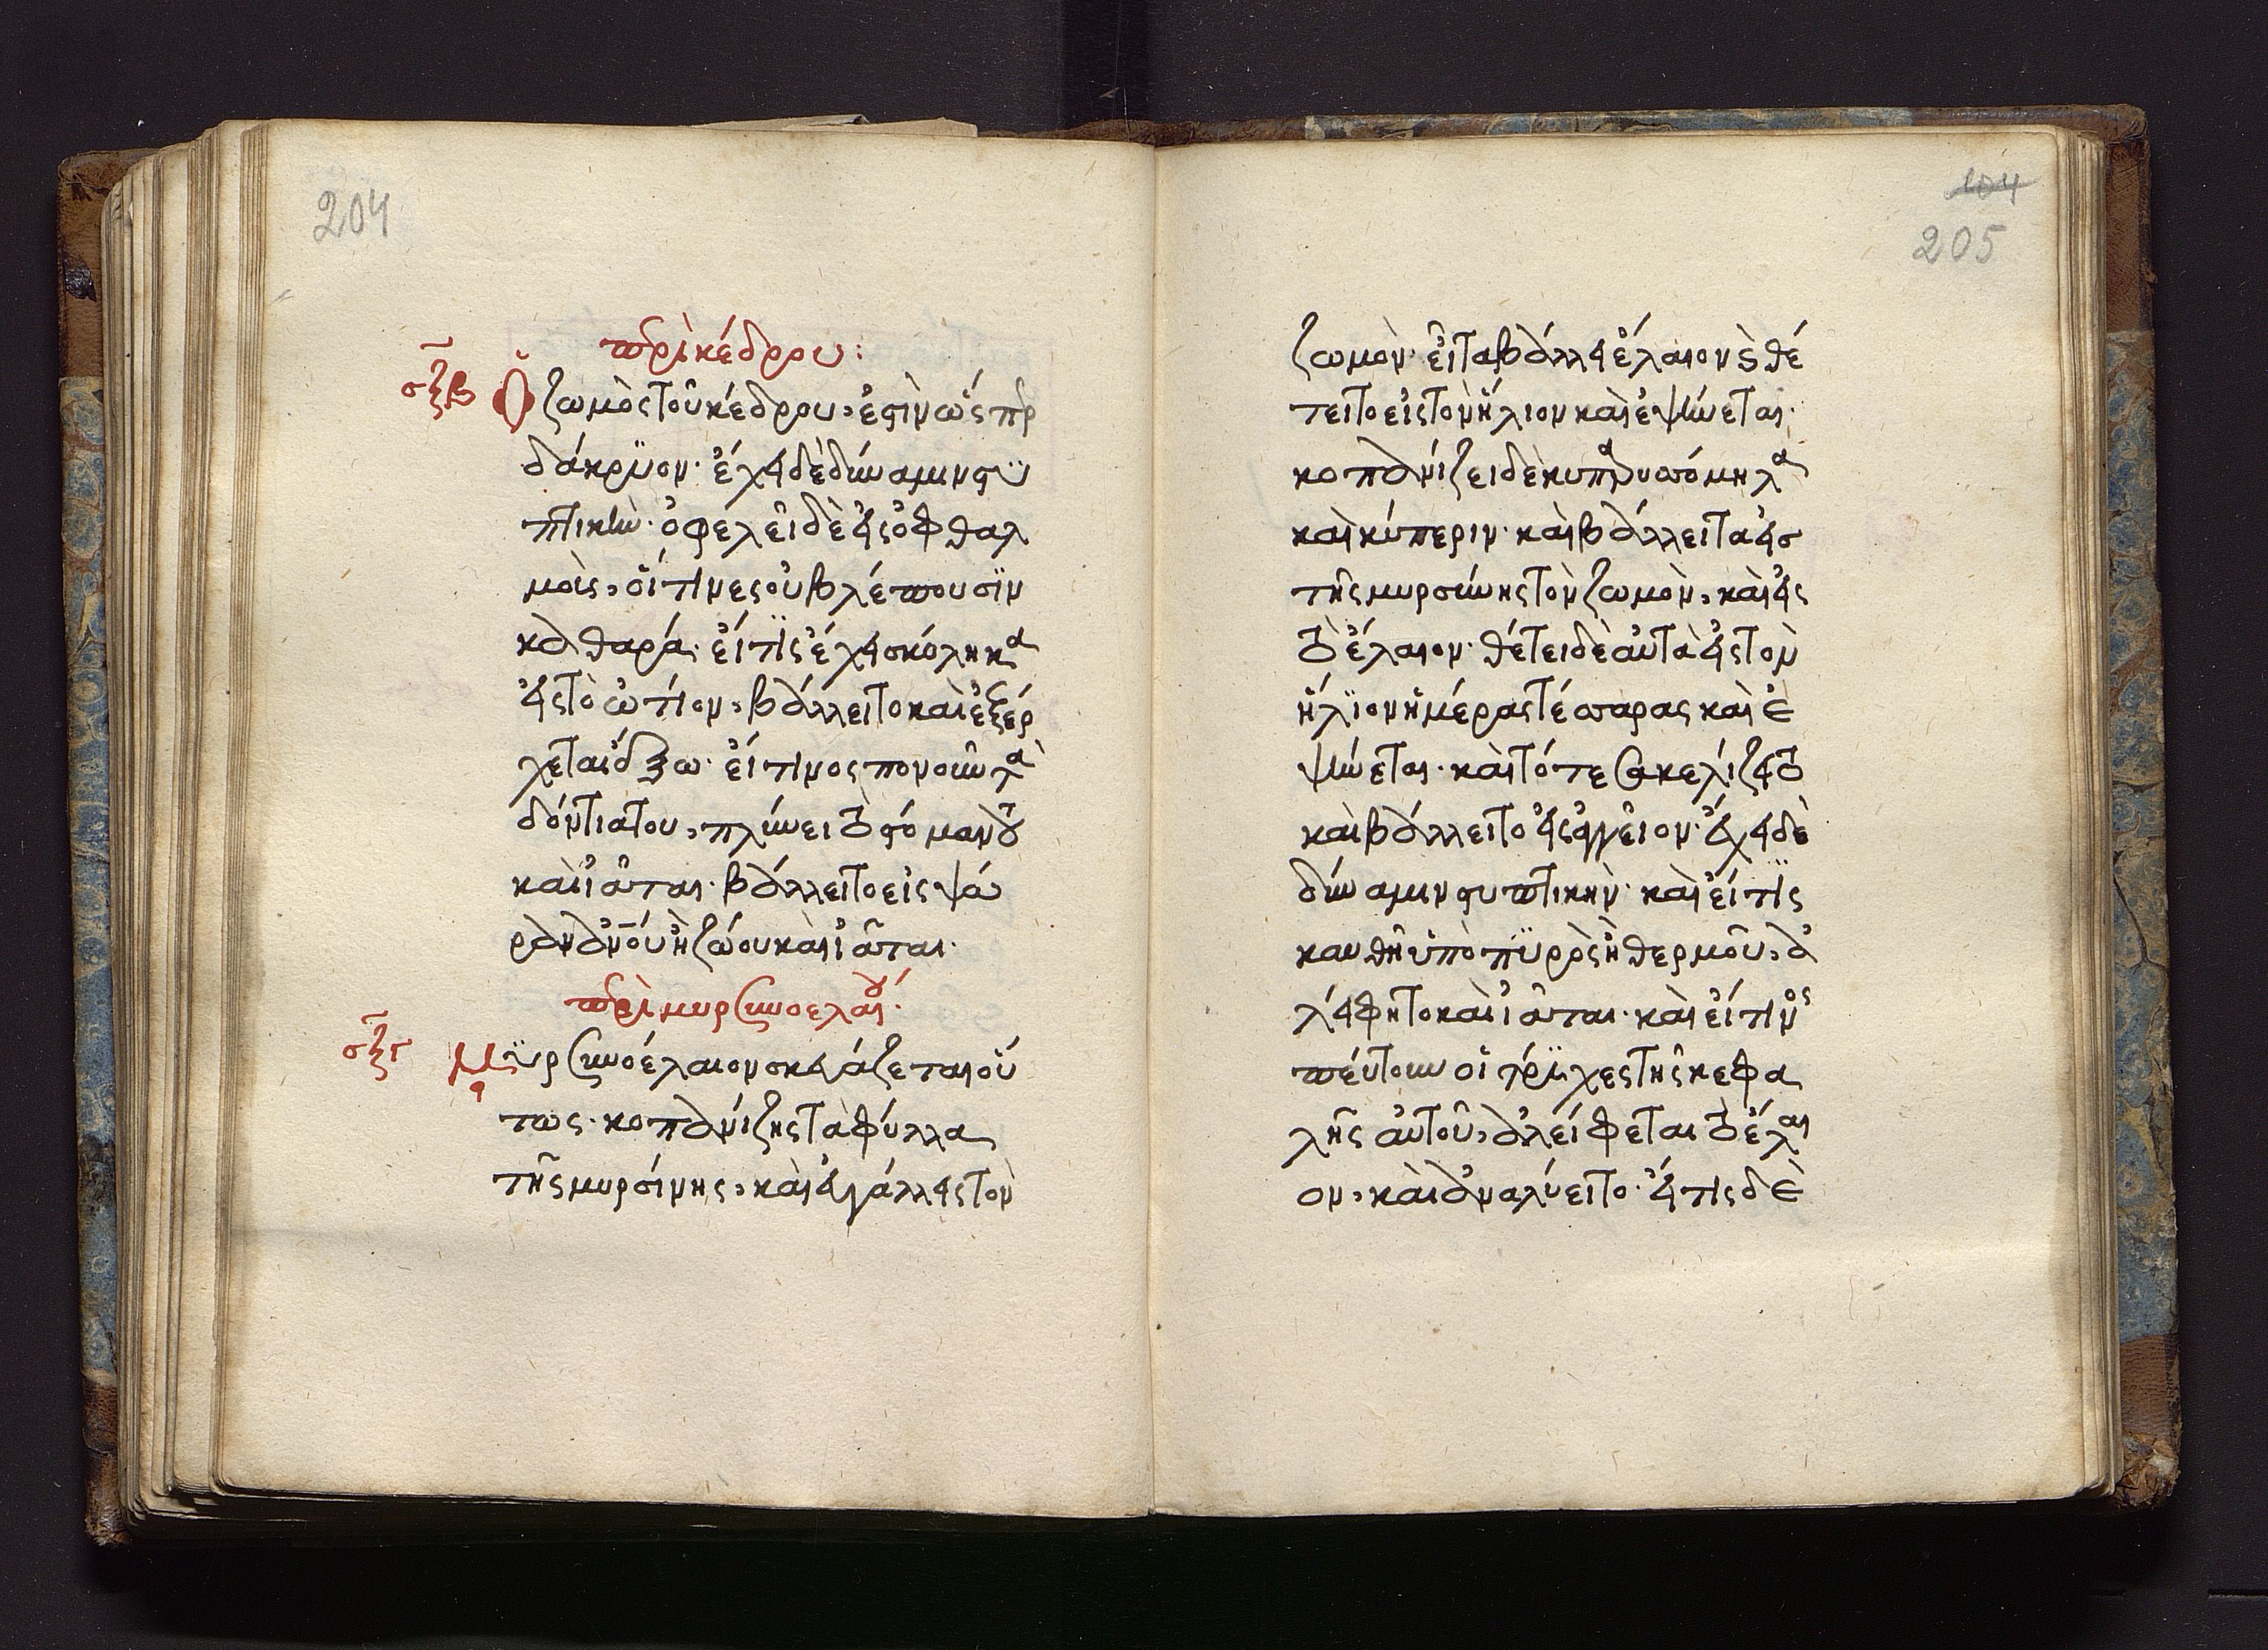 204
περὶ κέδρου:
σξβ Ὁ ζωμὸς τοῦ κέδρου, ἐστὶν ὡς πρ
δάκρϋον· ἔχει δὲ δύναμιν στϋ
πτικὴν· ὀφελεῖ δὲ εἰς ὀφθαλ
μοὶς, οἵτινες οὐ βλέπουσϊν
καθαρά· εἴ τϊς ἔχει σκόληκα
εἰς τὸ ὠτίον, βάλλει το καὶ ἐξέρ
χεται ἔξω· εἴ τινος πονοῦν τὰ
δόντια του, πλύνει τὸ στόμαν τοῦ
καὶ ἰᾶται· βάλλει το εἰς ψώ
ραν ἀνου ἢ ζώου καὶ ἰᾶται·
περὶ μυρσινοελαίου·
σξγ Μϋρσινοέλαιον σκευάζεται οὕ
τως· κοπανίζης τὰ φύλλα
τῆς μυρσίνης, καὶ εὐγάλλεις τὸν
104
205
ζωμὸν· εἶτα βάλλει ἔλαιον κὲ θέ
τει το εἰς τὸν ἥλιον καὶ ἐψήνεται·
κοπανίζει δὲ κυπαρισσόμηλα
καὶ κύπεριν· καὶ βάλλει τα εἰσ
τῆς μυρσίνης τὸν ζωμὸν, καὶ εἰς
τὸ ἔλαιον· θέτει δὲ αὐτὰ εἰς τὸν
ἥλϊον ἡμέρας τέσσαρας καὶ ἐ
ψήνεται· καὶ τότε σακελίζει τὸ
καὶ βάλλει το εἰς ἀγγεῖον· ἔχει δὲ
δύναμιν στυπτικὴν· καὶ εἴ τϊς
καυθῆ ὑπὸ πϋρὸς ἢ θερμοῦ, ἀ
λείφη το καὶ ἰᾶται· καὶ εἴ τινος
πεύτουν οἱ τρίχες τῆς κεφα
λῆς αὐτοῦ, ἀλείφεται τὸ ἔλαι
ον, καὶ ἀναλύει το· εἴ τις δὲ